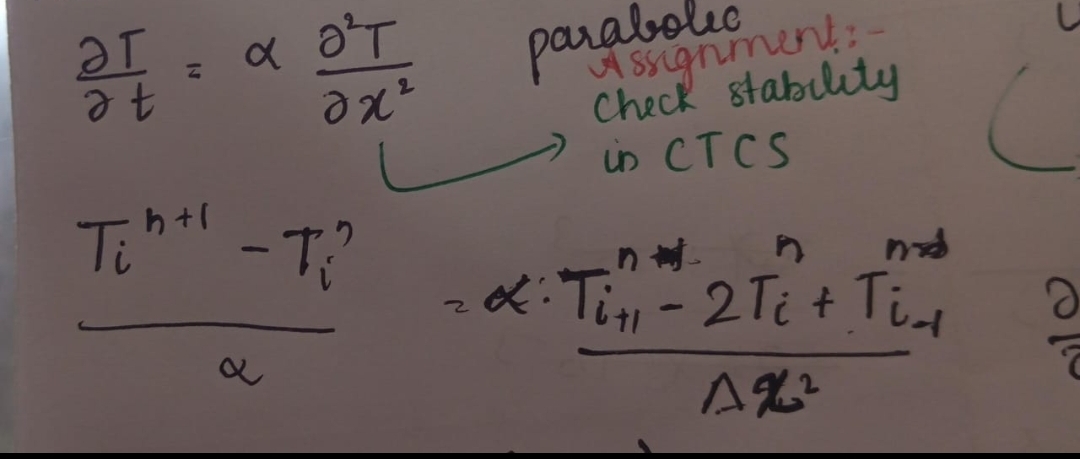 ∂T/∂t = α ∂²T/∂x²
parabolic
Assignment:-
Check stability
in CTCS
(Tᵢⁿ⁺¹ - Tᵢⁿ)/α = α · (Tᵢ₊₁ⁿ - 2Tᵢⁿ + Tᵢ₋₁ⁿ)/Δx²